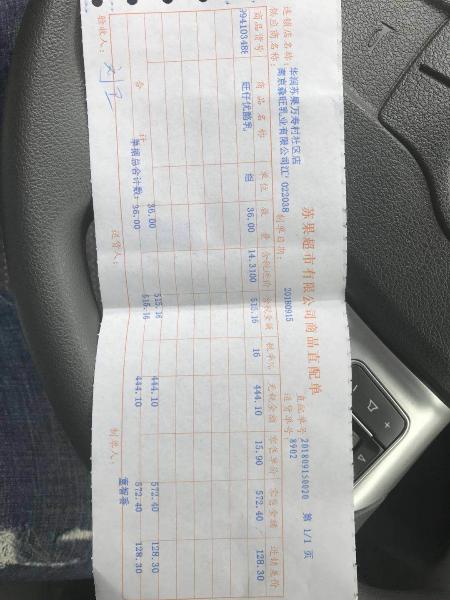 苏果超市有限公司商品直配单
直配单号 201809150020 第 1/1 页
连锁店名称: 华润苏果万寿村社区店
送货单号 8902
供应商名称: 南京 旺乳业有限公司江 022038 制单日期: 20180915
商品货号 商品名称 单位 数量 含税进价 含税金额 税率% 无税金额 零售单价 零售金额 进销差价
9941034BE 旺仔优酪乳 组 36.00 14.3100 515.16 16 444.10 15.90 572.40 128.30
合计 36.00 515.16 444.10 572.40 128.30
单据总合计数: 36.00 515.16 444.10 572.40 128.30
验收人: 送货人: 制单人: 董智香